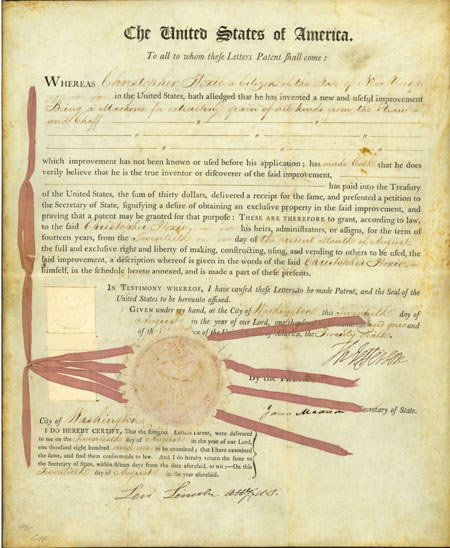 The United States of America.
To all to whom these Letters Patent shall come:
WHEREAS Christopher Hoxie a Citizen of the State of New York
in the United States, hath alledged that he has invented a new and useful improvement
Being a Machine for extracting grain of all kinds from the straw
and Chaff
which improvement has not been known or used before his application; has made Oath that he does
verily believe that he is the true inventor or discoverer of the said improvement,
has paid into the Treasury
of the United States, the sum of thirty dollars, delivered a receipt for the same, and presented a petition
to the Secretary of State, signifying a desire of obtaining an exclusive property in the said improvement, and
praying that a patent may be granted for that purpose: THESE ARE THEREFORE to grant, according to law,
to the said Christopher Hoxie his heirs, administrators, or assigns, for the term of
fourteen years, from the Twentieth day of the present Month of August
the full and exclusive right and liberty of making, constructing, using, and vending to others to be used, the
said improvement, a description whereof is given in the words of the said Christopher Hoxie
himself, in the schedule hereto annexed, and is made a part of these presents.
IN TESTIMONY WHEREOF, I have caused these Letters to be made Patent, and the Seal of the
United States to be hereunto affixed.
GIVEN under my hand, at the City of Washington this Twentieth day of
August in the year of our Lord, one thousand eight hundred and one and
of the Independence of the United States of America, the Twenty Sixth.
Th: Jefferson
BY THE PRESIDENT,
James Madison Secretary of State.
City of Washington
I DO HEREBY CERTIFY, That the foregoing Letters Patent, were delivered
to me on the Twentieth day of August in the year of our Lord,
one thousand eight hundred and one to be examined; that I have examined
the same, and find them conformable to law. And I do hereby return the same to
the Secretary of State, within fifteen days from the date aforesaid, to wit:—On this
Twentieth day of August in the year aforesaid.
Levi Lincoln